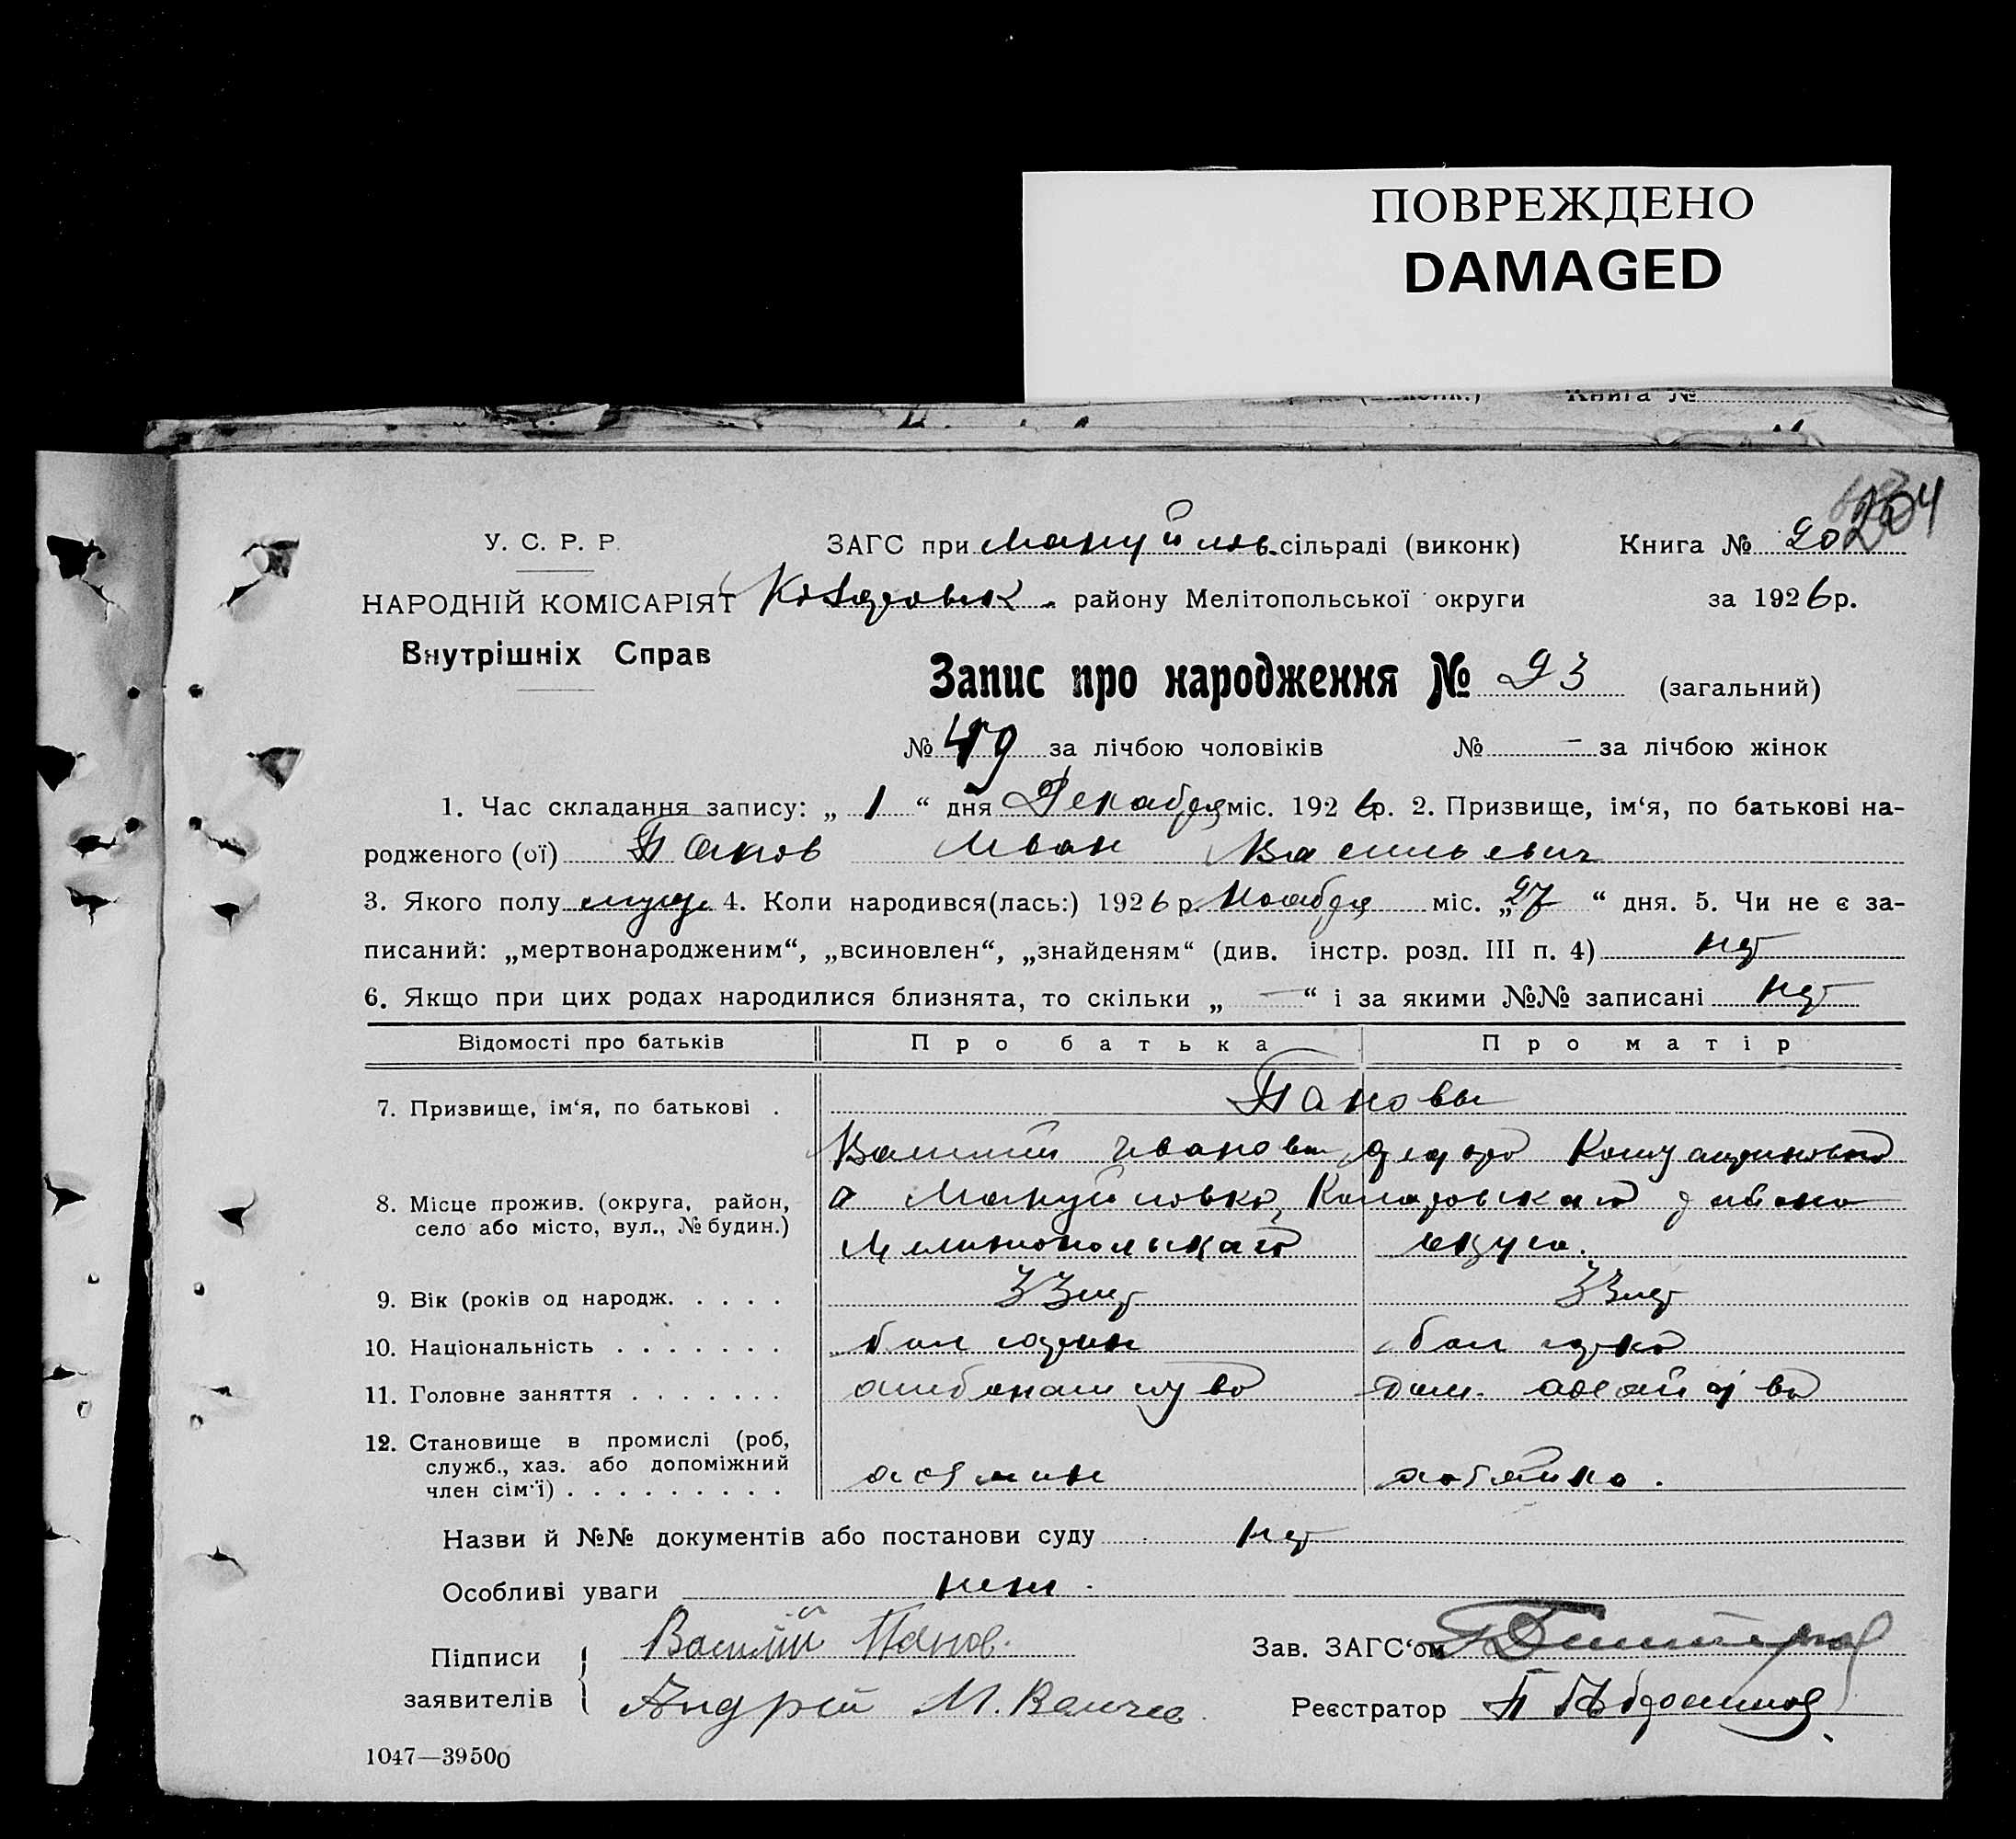 ПОВРЕЖДЕНО
DAMAGED
Книга №
204
У. С. Р. Р. ЗАГС при Мануйлов. сільраді (виконк) Книга № 20
НАРОДНІЙ КОМІСАРІЯТ району Мелітопольської округи за 1926 р.
Внутрішніх Справ
Запис про народження № 93 (загальний)
№ 49 за лічбою чоловіків № — за лічбою жінок
1. Час складання запису: „ 1 “ дня Декабря міс. 1926 р. 2. Призвище, ім‘я, по батькові на-
родженого (ої) Панов Иван Васильевич
3. Якого полу муж. 4. Коли народився(лась:) 1926 р. Ноября міс. „27“ дня. 5. Чи не є за-
писаний: „мертвонародженим“, „всиновлен“, „знайденям“ (див. інстр. розд. III п. 4) нет
6. Якщо при цих родах народилися близнята, то скільки „ — “ і за якими №№ записані нет
Відомості про батьків Про батька Про матір
7. Призвище, ім‘я, по батькові . Пановы
Василий Иванович
8. Місце прожив. (округа, район, с Мануйловка, Коларовского района
село або місто, вул., № будин.)
Мелитопольского округа.
9. Вік (років од народж. . . . . 33 лет 33 лет
10. Національність . . . . . . . болгарин болгарка
11. Головне заняття . . . . . . . хлебопашество дом. хозяйство
12. Становище в промислі (роб,
служб., хаз. або допоміжний
член сім‘ї) . . . . . . . . . хозяин хозяйка.
Назви й №№ документів або постанови суду нет
Особливі уваги нет.
Підписи Василий Панов. Зав. ЗАГС‘ом
заявителів Андрій И. Велчев Реєстратор
1047—39500